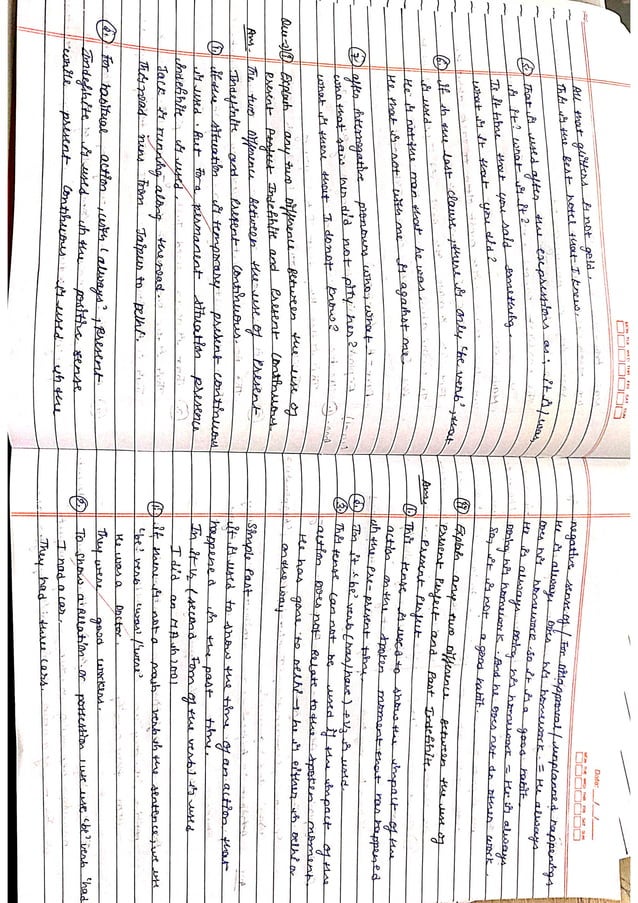 All that glitters is not gold.
This is the best hotel that I know.
5. That is used after the expressions as; it is/was
is it? what is it?
Is it time that you said something.
what is it that you did?
6. If in the last clause, there is only 'be verb', that
is used.
He is not the man that he was.
He that is not with me is against me.
7. after interrogative pronouns who, what
who that saw her did not pity her?
what is there that I donot know?
Que-2) Explain any two difference between the use of
Present Indefinite and Present Continuous.
Ans- The two difference between the use of Present
Indefinite and Present Continuous.
1. if the situation is temporary present continuous
is used but for a permanent situation presence
Indefinite is used.
Jack is running along the road.
This road runs from Jaipur to Delhi.
2. For habitual action, with (always), Present
Indefinite is used in the positive sense
while present continuous is used in the
Date: / /
negative sense of / For disapproval / unplanned happenings
He is always does his homework. = He always
does his homework so it is a good habit
He is always doing his homework = He is always
doing his homework. And he does not do other work.
So, it is not a good habit.
Explain any two difference between the use of
Present Perfect and Past Indefinite.
Ans Present Perfect
1. This tense is used to show the impact of the
action on the spoken moment that has happened
in the pre-present time.
2. In it 'be' verb (has/have) + V3 is used.
3. This tense can not be used if the impact of the
action does not relate to the spoken moment.
He has gone to Delhi → he is either in Delhi or
on the way
Simple Past
it is used to show the time of an action that
happened in the past time.
In it V2 (second form of the verb) is used
I did an M.A in 2001
1. if there is not a main verb in the sentence, we use
'be' verb was/were'
He was a Doctor.
They were good workers.
2. To show a relation or possession we use 'be' verb 'had
I had a car.
They had three cars